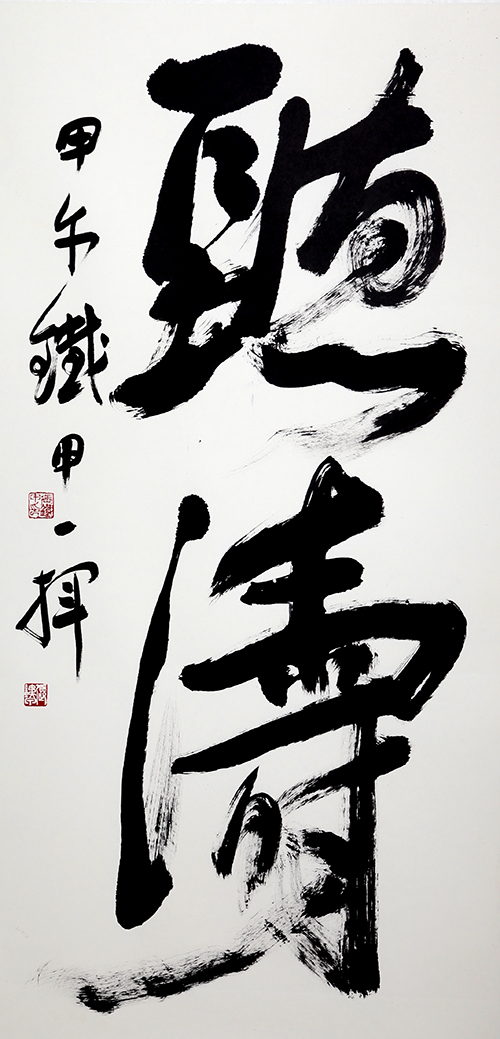 聽濤
甲午鐵甲一揮